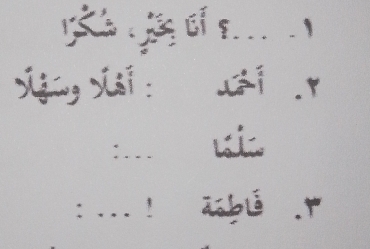 ١. ....؟ أَنَا بِخَيْرٍ، شُكْرًا
٢. أَحْمَد : أَهْلًا وسَهْلًا
سَلْمَا ....:
٣. فَاطِمَة ! .... :